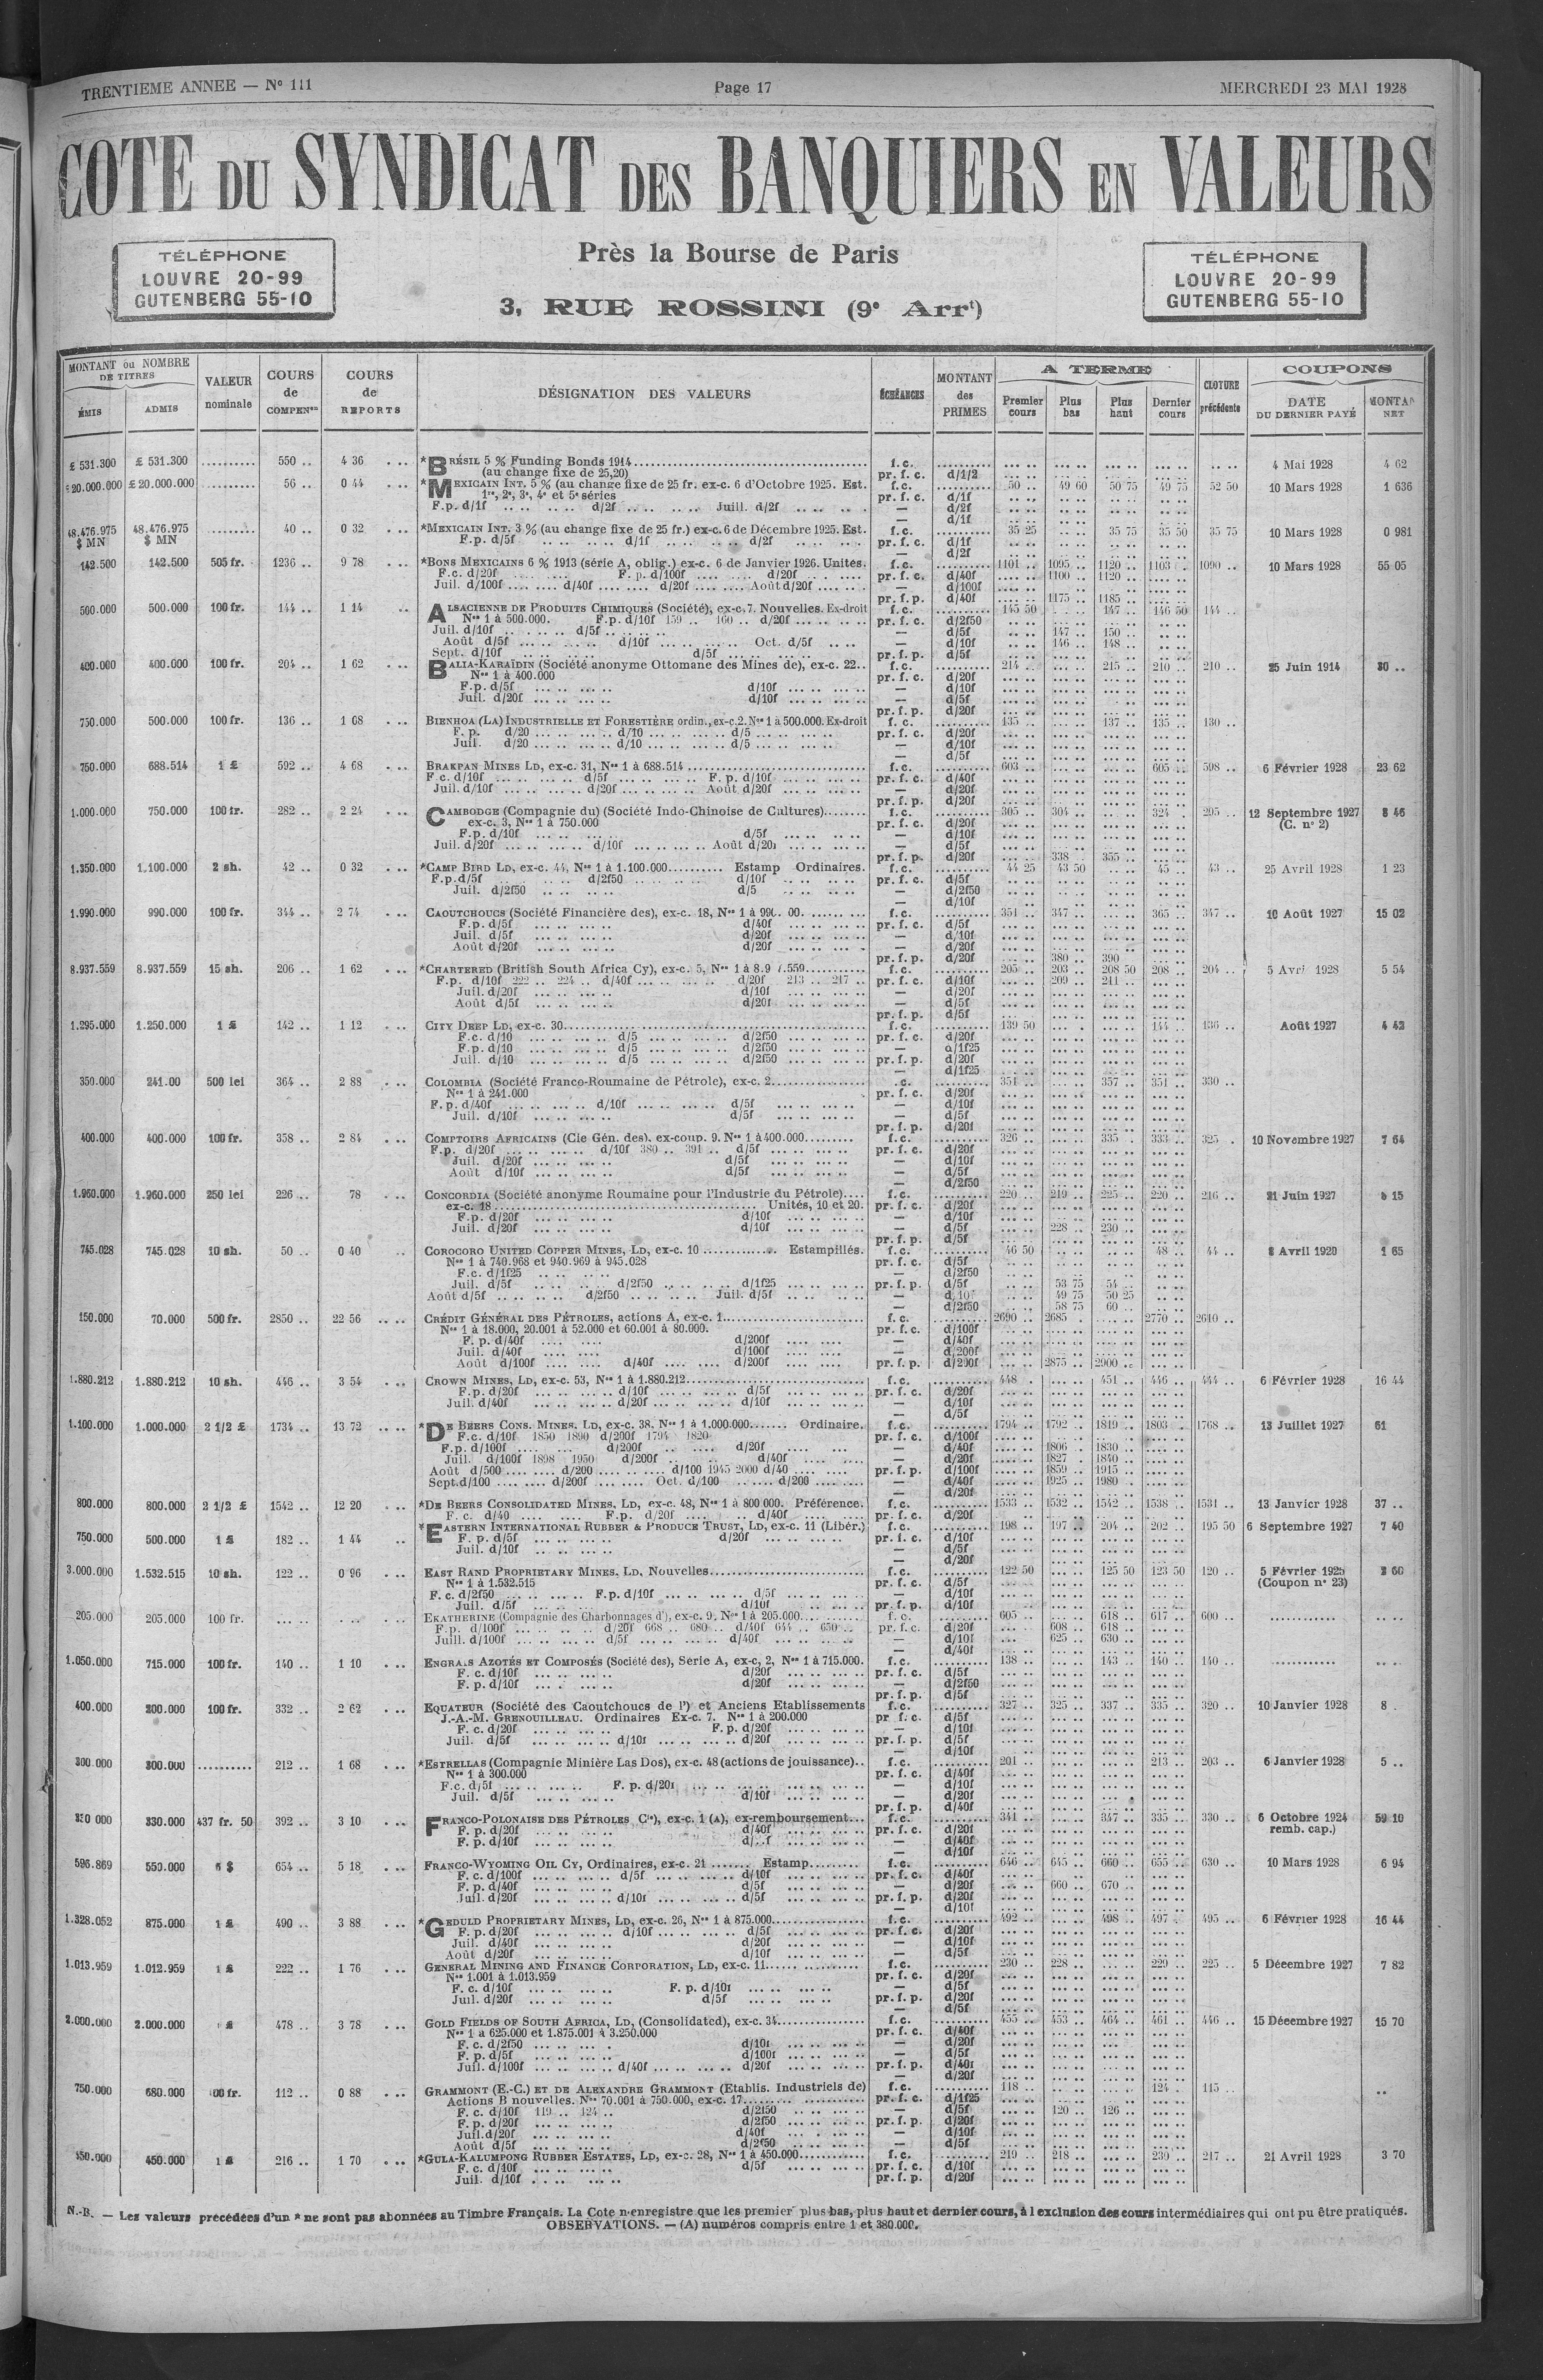 TRENTIEME ANNEE — No 111
Page 17
MERCREDI 23 MAI 1928
COTE DU SYNDICAT DES BANQUIERS EN VALEURS
TÉLÉPHONE
LOUVRE 20-99
GUTENBERG 55-10
Près la Bourse de Paris
3, RUE ROSSINI (9e Arrt)
TÉLÉPHONE
LOUVRE 20-99
GUTENBERG 55-10
MONTANT ou NOMBRE DE TITRES
ÉMIS ADMIS
VALEUR nominale
COURS de COMPENon
COURS de REPORTS
DÉSIGNATION DES VALEURS
ÉCHÉANCES
MONTANT des PRIMES
A TERME
Premier cours Plus bas Plus haut Dernier cours
CLOTURE précédente
COUPONS
DATE DU DERNIER PAYÉ
NET
£ 531.300 £ 531.300 .......... 550 .. 4 36 *BRÉSIL 5 % Funding Bonds 1914 f.c. 4 Mai 1928 4 62
(au change fixe de 25,20) pr. f. c. d/1/2
£ 20.000.000 .......... 56 .. 0 44 *MEXICAIN INT. 5 % (au change fixe de 25 fr. ex-c. 6 d'Octobre 1925. Est. f.c. 50 .. 49 60 50 75 49 75 52 50 10 Mars 1928 1 636
1re, 2e, 3e, 4e et 5e séries pr. f. c. d/1f
F.p. d/1f d/2f Juill. d/2f — d/2f
— d/1f
48.476.975 $ MN 48.476.975 $ MN .......... 40 .. 0 32 *MEXICAIN INT. 3 % (au change fixe de 25 fr.) ex-c. 6 de Décembre 1925. Est. f.c. 35 25 35 75 35 50 35 75 10 Mars 1928 0 981
F.p. d/5f d/1f d/2f pr. f. c. d/1f
— d/2f
142.500 142.500 505 fr. 1236 .. 9 78 *BONS MEXICAINS 6 % 1913 (série A, oblig.) ex-c. 6 de Janvier 1926. Unités. f.c. 1101 .. 1095 .. 1120 .. 1103 .. 1090 .. 10 Mars 1928 55 05
F.c. d/20f F. p. d/100f d/20f pr. f. c. d/40f 1100 .. 1120 ..
Juil. d/100f d/40f d/20f Août d/20f — d/100f
pr. f. p. d/40f 1175 .. 1185 ..
500.000 500.000 100 fr. 144 .. 1 14 ALSACIENNE DE PRODUITS CHIMIQUES (Société), ex-c. 7. Nouvelles. Ex-droit f.c. 145 50 147 .. 146 50 144 ..
Nos 1 à 500.000. F.p. d/10f 159 .. 160 .. d/20f pr. f. c. d/2f50
Juil. d/10f d/5f — d/5f 147 .. 150 ..
Août d/5f d/10f Oct. d/5f — d/10f 146 .. 148 ..
Sept. d/10f d/5f pr. f. p. d/5f
400.000 400.000 100 fr. 204 .. 1 62 BALIA-KARAÏDIN (Société anonyme Ottomane des Mines de), ex-c. 22.. f.c. 214 .. 215 .. 210 .. 210 .. 25 Juin 1914 30 ..
Nos 1 à 400.000 pr. f. c. d/20f
F.p. d/5f d/10f — d/10f
Juil. d/20f d/10f — d/5f
pr. f. p. d/20f
750.000 500.000 100 fr. 136 .. 1 08 BIENHOA (LA) INDUSTRIELLE ET FORESTIÈRE ordin., ex-c. 2. Nos 1 à 500.000. Ex-droit f. c. 135 .. 137 .. 135 .. 130 ..
F. p. d/20 d/10 d/5 pr. f. c. d/20f
Juil. d/20 d/10 d/5 — d/10f
— d/5f
750.000 688.514 1 £ 592 .. 4 68 BRAKPAN MINES LD, ex-c. 31, Nos 1 à 688.514 f.c. 603 .. 605 .. 598 .. 6 Février 1928 23 62
F.c. d/10f d/5f F. p. d/10f pr. f. c. d/40f
Juil. d/10f d/20f Août d/20f — d/20f
pr. f. p. d/20f
1.000.000 750.000 100 fr. 282 .. 2 24 CAMBODGE (Compagnie du) (Société Indo-Chinoise de Cultures) f.c. 305 .. 304 .. 324 . 295 .. 12 Septembre 1927 8 46
ex-c. 3, Nos 1 à 750.000 pr. f. c. d/20f (C. no 2)
F.p. d/10f d/5f — d/10f
Juil. d/20f d/10f Août d/20f — d/5f
pr. f. p. d/20f 338 .. 355 ..
1.350.000 1.100.000 2 sh. 42 .. 0 32 *CAMP BIRD LD, ex-c. 44, Nos 1 à 1.100.000 Estamp Ordinaires. f.c. 44 25 43 50 45 .. 43 .. 25 Avril 1928 1 23
F.p. d/5f d/2f50 d/10f pr. f. c. d/5f
Juil. d/2f50 d/5 — d/2f50
— d/10f
1.990.000 990.000 100 fr. 344 .. 2 74 CAOUTCHOUCS (Société Financière des), ex-c. 18, Nos 1 à f.c. 351 .. 347 .. 365 .. 347 .. 10 Août 1927 15 02
F.p. d/5f d/40f pr. f. c. d/5f
Juil. d/5f d/20f — d/10f
Août d/20f d/20f — d/20f
pr. f. p. d/20f 380 .. 390 ..
8.937.559 8.937.559 15 sh. 206 .. 1 62 *CHARTERED (British South Africa Cy), ex-c. 5, Nos 1 à f.c. 205 .. 203 .. 208 50 208 .. 204 .. 5 Avri 1928 5 54
F.p. d/10f 222 .. 224 .. d/40f d/20f 213 .. 217 .. pr. f. c. d/10f 209 .. 211 ..
Juil. d/20f d/10f — d/20f
Août d/5f d/20f — d/5f
pr. f. p. d/5f
1.295.000 1.250.000 1 £ 142 .. 1 12 CITY DEEP LD, ex-c. 30 f.c. 139 50 144 .. 136 .. Août 1927 4 42
F.c. d/10 d/5 d/2f50 pr. f. c. d/20f
F.p. d/10 d/5 d/2f50 — d/1f25
Juil. d/10 d/5 d/2f50 pr. f. p. d/20f
— d/1f25
350.000 241.00 500 lei 364 .. 2 88 COLOMBIA (Société Franco-Roumaine de Pétrole), ex-c. 2 .c. 351 .. 357 .. 351 .. 330 ..
Nos 1 à 241.000 pr. f. c. d/20f
F.p. d/40f d/10f d/5f — d/10f
Juil. d/10f d/5f — d/5f
pr. f. p. d/20f
400.000 400.000 100 fr. 358 .. 2 84 COMPTOIRS AFRICAINS (Cie Gén. des), ex-coup. 9. Nos 1 à 400.000 f.c. 326 .. 335 . 333 .. 325 . 10 Novembre 1927 7 64
F.p. d/20f d/10f 380 .. 391 .. d/5f pr. f. c. d/20f
Juil. d/20f d/5f — d/10f
Août d/10f d/5f — d/5f
— d/2f50
1.960.000 1.960.000 250 lei 226 .. 78 CONCORDIA (Société anonyme Roumaine pour l'Industrie du Pétrole) f.c. 220 .. 219 .. 225 .. 220 .. 216 .. 21 Juin 1927 15
ex-c. 18 Unités, 10 et 20. pr. f. c. d/20f
F.p. d/20f d/10f — d/10f
Juil. d/20f d/10f — d/5f 228 .. 230 ..
pr. f. p. d/5f
745.028 745.028 10 sh. 50 .. 0 40 COROCORO UNITED COPPER MINES, LD, ex-c. 10 Estampillés. f.c. 46 50 48 .. 44 .. 8 Avril 1920 1 65
Nos 1 à 740.968 et 940.969 à 945.028 pr. f. c. d/5f
F.c. d/1f25 — d/2f50
Juil. d/5f d/2f50 d/1f25 pr. f. p. d/5f 53 75 54 ..
Août d/5f d/2f50 Juil. d/5f — d/10f 49 75 50 25
— d/2f50 58 75 60 ..
150.000 70.000 500 fr. 2850 .. 22 56 CRÉDIT GÉNÉRAL DES PÉTROLES, actions A, ex-c. 1 f.c. 2690 .. 2685 . 2770 .. 2640 ..
Nos 1 à 18.000, 20.001 à 52.000 et 60.001 à 80.000. pr. f. c. d/100f
F. p. d/40f d/200f — d/40f
Juil. d/40f d/100f — d/200f
Août d/100f d/40f d/200f pr. f. p. d/200f 2875 .. 2900 ..
1.880.212 1.880.212 10 sh. 446 .. 3 54 CROWN MINES, LD, ex-c. 53, Nos 1 à 1.880.212 f.c. 448 . 451 .. 446 .. 444 .. 6 Février 1928 16 44
F.p. d/20f d/10f d/5f pr. f. c. d/20f
Juil. d/40f d/20f d/10f — d/10f
— d/5f
1.100.000 1.000.000 2 1/2 £ 1734 .. 13 72 *DE BEERS CONS. MINES. LD, ex-c. 38, Nos 1 à 1.000.000 Ordinaire. f.c. 1794 .. 1792 .. 1819 .. 1803 . 1768 .. 13 Juillet 1927 61
F.c. d/10f 1850 1890 d/200f 1794 1820 pr. f. c. d/100f
F.p. d/100f d/200f d/20f — d/40f 1806 .. 1830 ..
Juil. d/100f 1898 1950 d/200f d/40f — d/20f 1827 . 1840 ..
Août d/500 d/200 d/100 1945 2000 d/40 pr. f. p. d/100f 1859 .. 1915 ..
Sept. d/100 d/200f Oct. d/100 d/200 — d/40f 1925 .. 1980 ..
— d/20f
800.000 800.000 2 1/2 £ 1542 .. 12 20 *DE BEERS CONSOLIDATED MINES, LD, ex-c. 48, Nos 1 à 800 000. Préférence. f.c. 1533 .. 1532 .. 1542 .. 1538 .. 1531 .. 13 Janvier 1928 37 ..
F. c. d/40 F.p. d/20f d/40f pr. f. c. d/20f
750.000 500.000 1 £ 182 .. 1 44 *EASTERN INTERNATIONAL RUBBER & PRODUCE TRUST, LD, ex-c. 11 (Libér.) f.c. 198 .. 197 .. 204 .. 202 .. 195 50 6 Septembre 1927 7 40
F. p. d/5f d/20f pr. f. c. d/10f
Juil. d/10f — d/5f
— d/20f
3.000.000 1.532.515 10 sh. 122 .. 0 96 EAST RAND PROPRIETARY MINES, LD, Nouvelles f.c. 122 50 125 50 123 50 120 .. 5 Février 1925 60
Nos 1 à 1.532.515 pr. f. c. d/5f (Coupon no 23)
F. c. d/2f50 F.p. d/10f d/5f — d/10f
Juil. d/5f d/10f pr. f. p. d/10f
205.000 205.000 100 fr. EKATHERINE (Compagnie des Charbonnages d'), ex-c. 9, Nos 1 à 205.000 f. c. 605 .. 618 .. 617 .. 600 ..
F.p. d/100f d/20f 668 .. 680 .. d/40f 644 .. 650 .. pr. f. c. d/20f 608 .. 618 ..
Juill. d/100f d/5f d/40f — d/10f 625 .. 630 ..
— d/40f
1.050.000 715.000 100 fr. 140 .. 1 10 ENGRAIS AZOTÉS ET COMPOSÉS (Société des), Serie A, ex-c. 2, Nos 1 à 715.000. f.c. 138 .. 143 .. 140 .. 140 ..
F. c. d/10f d/20f pr. f. c. d/5f
F. p. d/10f d/20f — d/2f50
pr. f. p. d/5f
400.000 200.000 100 fr. 332 .. 2 62 EQUATEUR (Société des Caoutchoucs de l') et Anciens Etablissements f.c. 327 .. 325 .. 337 .. 335 .. 320 .. 10 Janvier 1928 8 .
J.-A.-M. GRENOUILLEAU. Ordinaires Ex-c. 7. Nos 1 à 200.000 pr. f. c. d/5f
F. c. d/20f F. p. d/20f — d/10f
Juil. d/5f d/10f d/20f pr. f. p. d/5f
— d/10f
300.000 300.000 .......... 212 .. 1 68 *ESTRELLAS (Compagnie Minière Las Dos), ex-c. 48 (actions de jouissance).. f.c. 201 .. 213 .. 203 .. 6 Janvier 1928 5 ..
Nos 1 à 300.000 pr. f. c. d/40f
F.c. d/5f F. p. d/20f — d/10f
Juil. d/5f d/10f — d/20f
pr. f. p. d/40f
330 000 330.000 437 fr. 50 392 .. 3 10 FRANCO-POLONAISE DES PÉTROLES Cie), ex-c. 1 (A), ex-remboursement f.c. 341 .. 347 .. 335 .. 330 .. 6 Octobre 1924 59 10
F. p. d/20f d/40f pr. f. c. d/20f remb. cap.)
F. p. d/10f — d/40f
— d/10f
596.869 550.000 $ 654 .. 5 18 FRANCO-WYOMING OIL CY, Ordinaires, ex-c. 21 Estamp f.c. 646 .. 645 .. 660 .. 655 .. 630 .. 10 Mars 1928 6 94
F. c. d/100f d/5f d/10f pr. f. c. d/40f
F. p. d/40f d/5f — d/20f 660 .. 670 ..
Juil. d/20f d/10f d/5f pr. f. p. d/20f
— d/10f
1.328.052 875.000 1 £ 490 .. 3 88 *GEDULD PROPRIETARY MINES, LD, ex-c. 26, Nos 1 à 875.000 f.c. 492 .. 498 .. 497 . 495 .. 6 Février 1928 16 44
F. p. d/20f d/10f d/5f pr. f. c. d/20f
Juil. d/40f d/20f — d/10f
Août d/20f d/10f — d/5f
1.013.959 1.012.959 1 £ 222 .. 1 76 GENERAL MINING AND FINANCE CORPORATION, LD, ex-c. 11 f.c. 230 .. 228 .. 229 .. 225 .. 5 Décembre 1927 7 82
Nos 1.001 à 1.013.959 pr. f. c. d/20f
F. c. d/10f F. p. d/10f — d/5f
Juil. d/20f d/5f pr. f. p. d/20f
— d/5f
2.000.000 2.000.000 £ 478 .. 3 78 GOLD FIELDS OF SOUTH AFRICA, LD, (Consolidated), ex-c. 34 f.c. 455 .. 453 .. 464 .. 461 .. 446 .. 15 Décembre 1927 15 70
Nos 1 a 625.000 et 1.875.001 à 3.250.000 pr. f. c. d/40f
F. c. d/2f50 d/10f — d/20f
F. p. d/5f d/100f — d/5f
Juil. d/100f d/40f d/20f pr. f. p. d/40f
— d/20f
750.000 680.000 00 fr. 112 .. 0 88 GRAMMONT (E.-C.) ET DE ALEXANDRE GRAMMONT (Etablis. Industriels de) f.c. 118 .. 124 . 115 ..
Actions B nouvelles. Nos 70.001 à 750.000, ex-c. 17 pr. f. c. d/1f25
F. c. d/10f 119 .. 124 .. d/2f50 — d/5f 120 .. 126 ..
F. p. d/20f d/2f50 pr. f. p. d/20f
Juil. d/20f d/40f — d/10f
Août d/5f d/2f50 — d/5f
450.000 450.000 1 £ 216 .. 1 70 *GULA-KALUMPONG RUBBER ESTATES, LD, ex-c. 28, Nos 1 à 450.000 f.c. 219 .. 218 .. 230 .. 217 .. 21 Avril 1928 3 70
F. c. d/10f d/5f pr. f. c. d/10f
Juil. d/10f pr. f. p. d/20f
N.-B. — Les valeurs précédées d'un * ne sont pas abonnées au Timbre Français. La Cote n'enregistre que les premier plus bas, plus haut et dernier cours, à l exclusion des cours intermédiaires qui ont pu être pratiqués.
OBSERVATIONS. — (A) numéros compris entre 1 et 380.000.